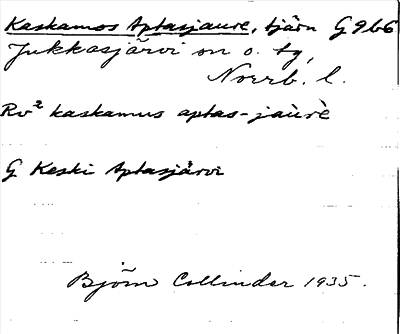 Kaskamos Aptasjaure, tjärn G 9 b 6
Jukkasjärvi sn o. tg,
Norrb. l.
Rv² kaskamus aptas-jau̇rè
G Keski Aptasjärvi
Björn Collinder 1935.